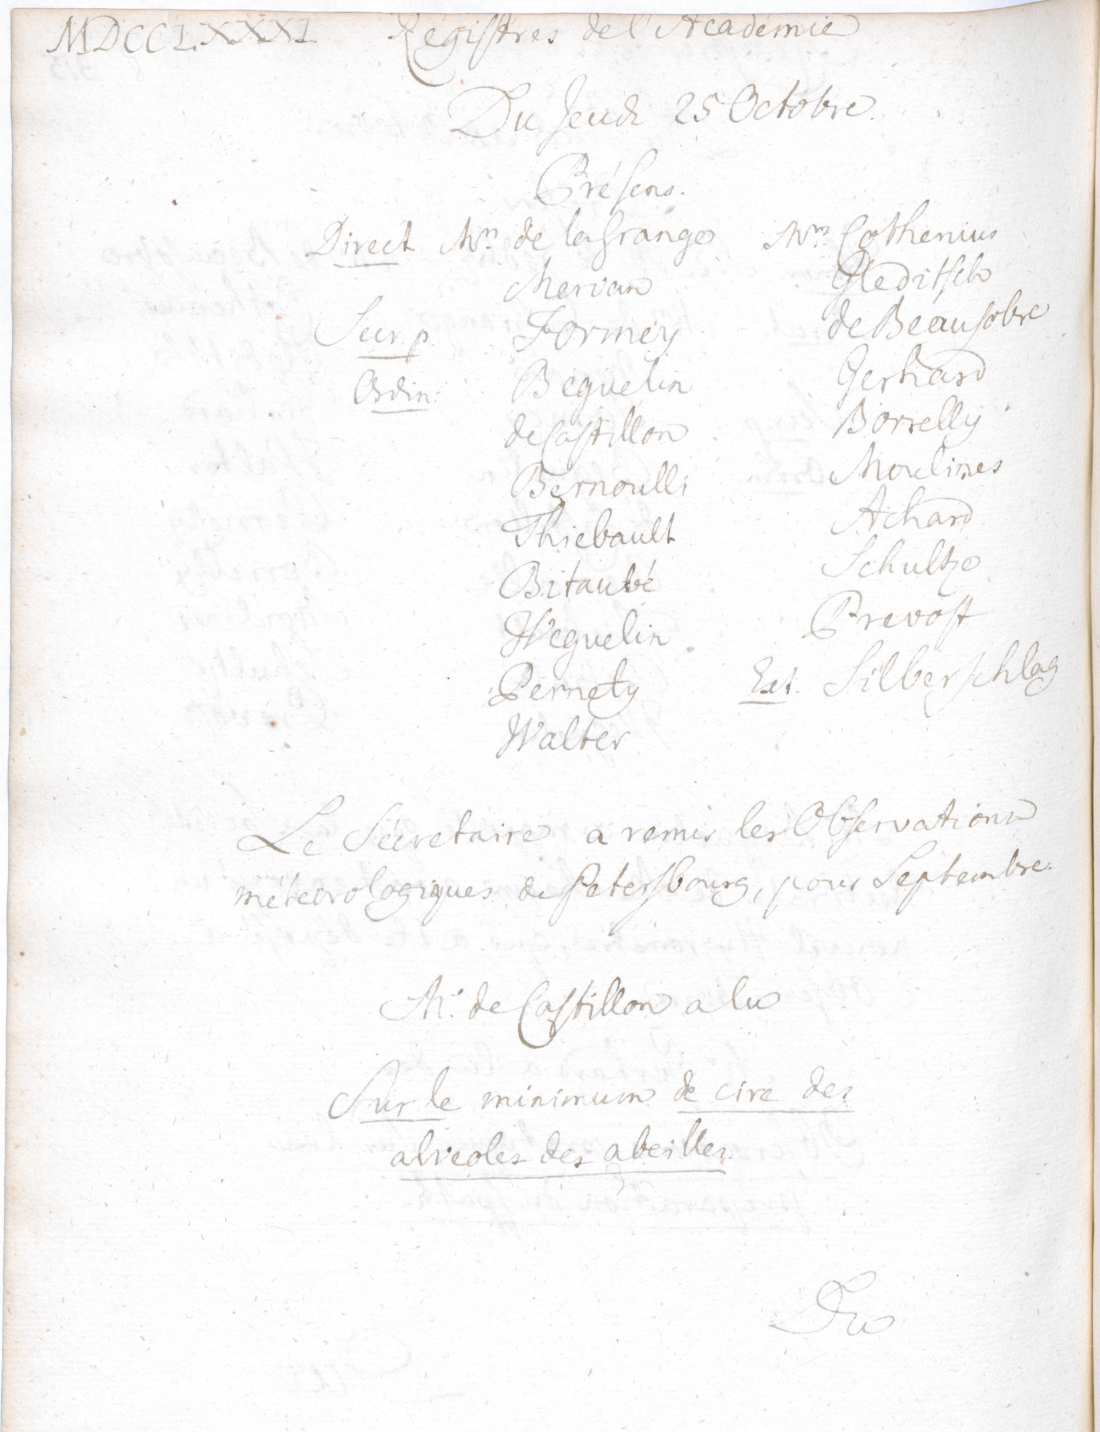 MDCCLXXXI Régistres de l'Academie
Du Jeudi 25 Octobre.
Présens.
Direct Mrs. de la Grange Mrs. Cothenius
Merian Gleditsch
Formey de Beausobre
Ordin: Beguelin Gerhard
de Castillon Borrelly
Bernoulli Moulines
Thiebault Achard
Bitaubé Schultze
Weguelin Prevost
Pernety Ext. Silberschlag
Walter
Le Sécretaire a remis les Observations
météorologiques de Petersbourg, pour Septembre.
Mr. de Castillon a lu
Sur le minimum de cire des
alvéoles des abeilles.
Du